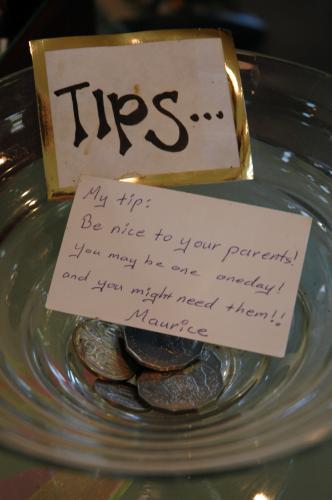 TIPS...
My tip:
Be nice to your parents!
you may be one oneday!
and you might need them!!
Maurice